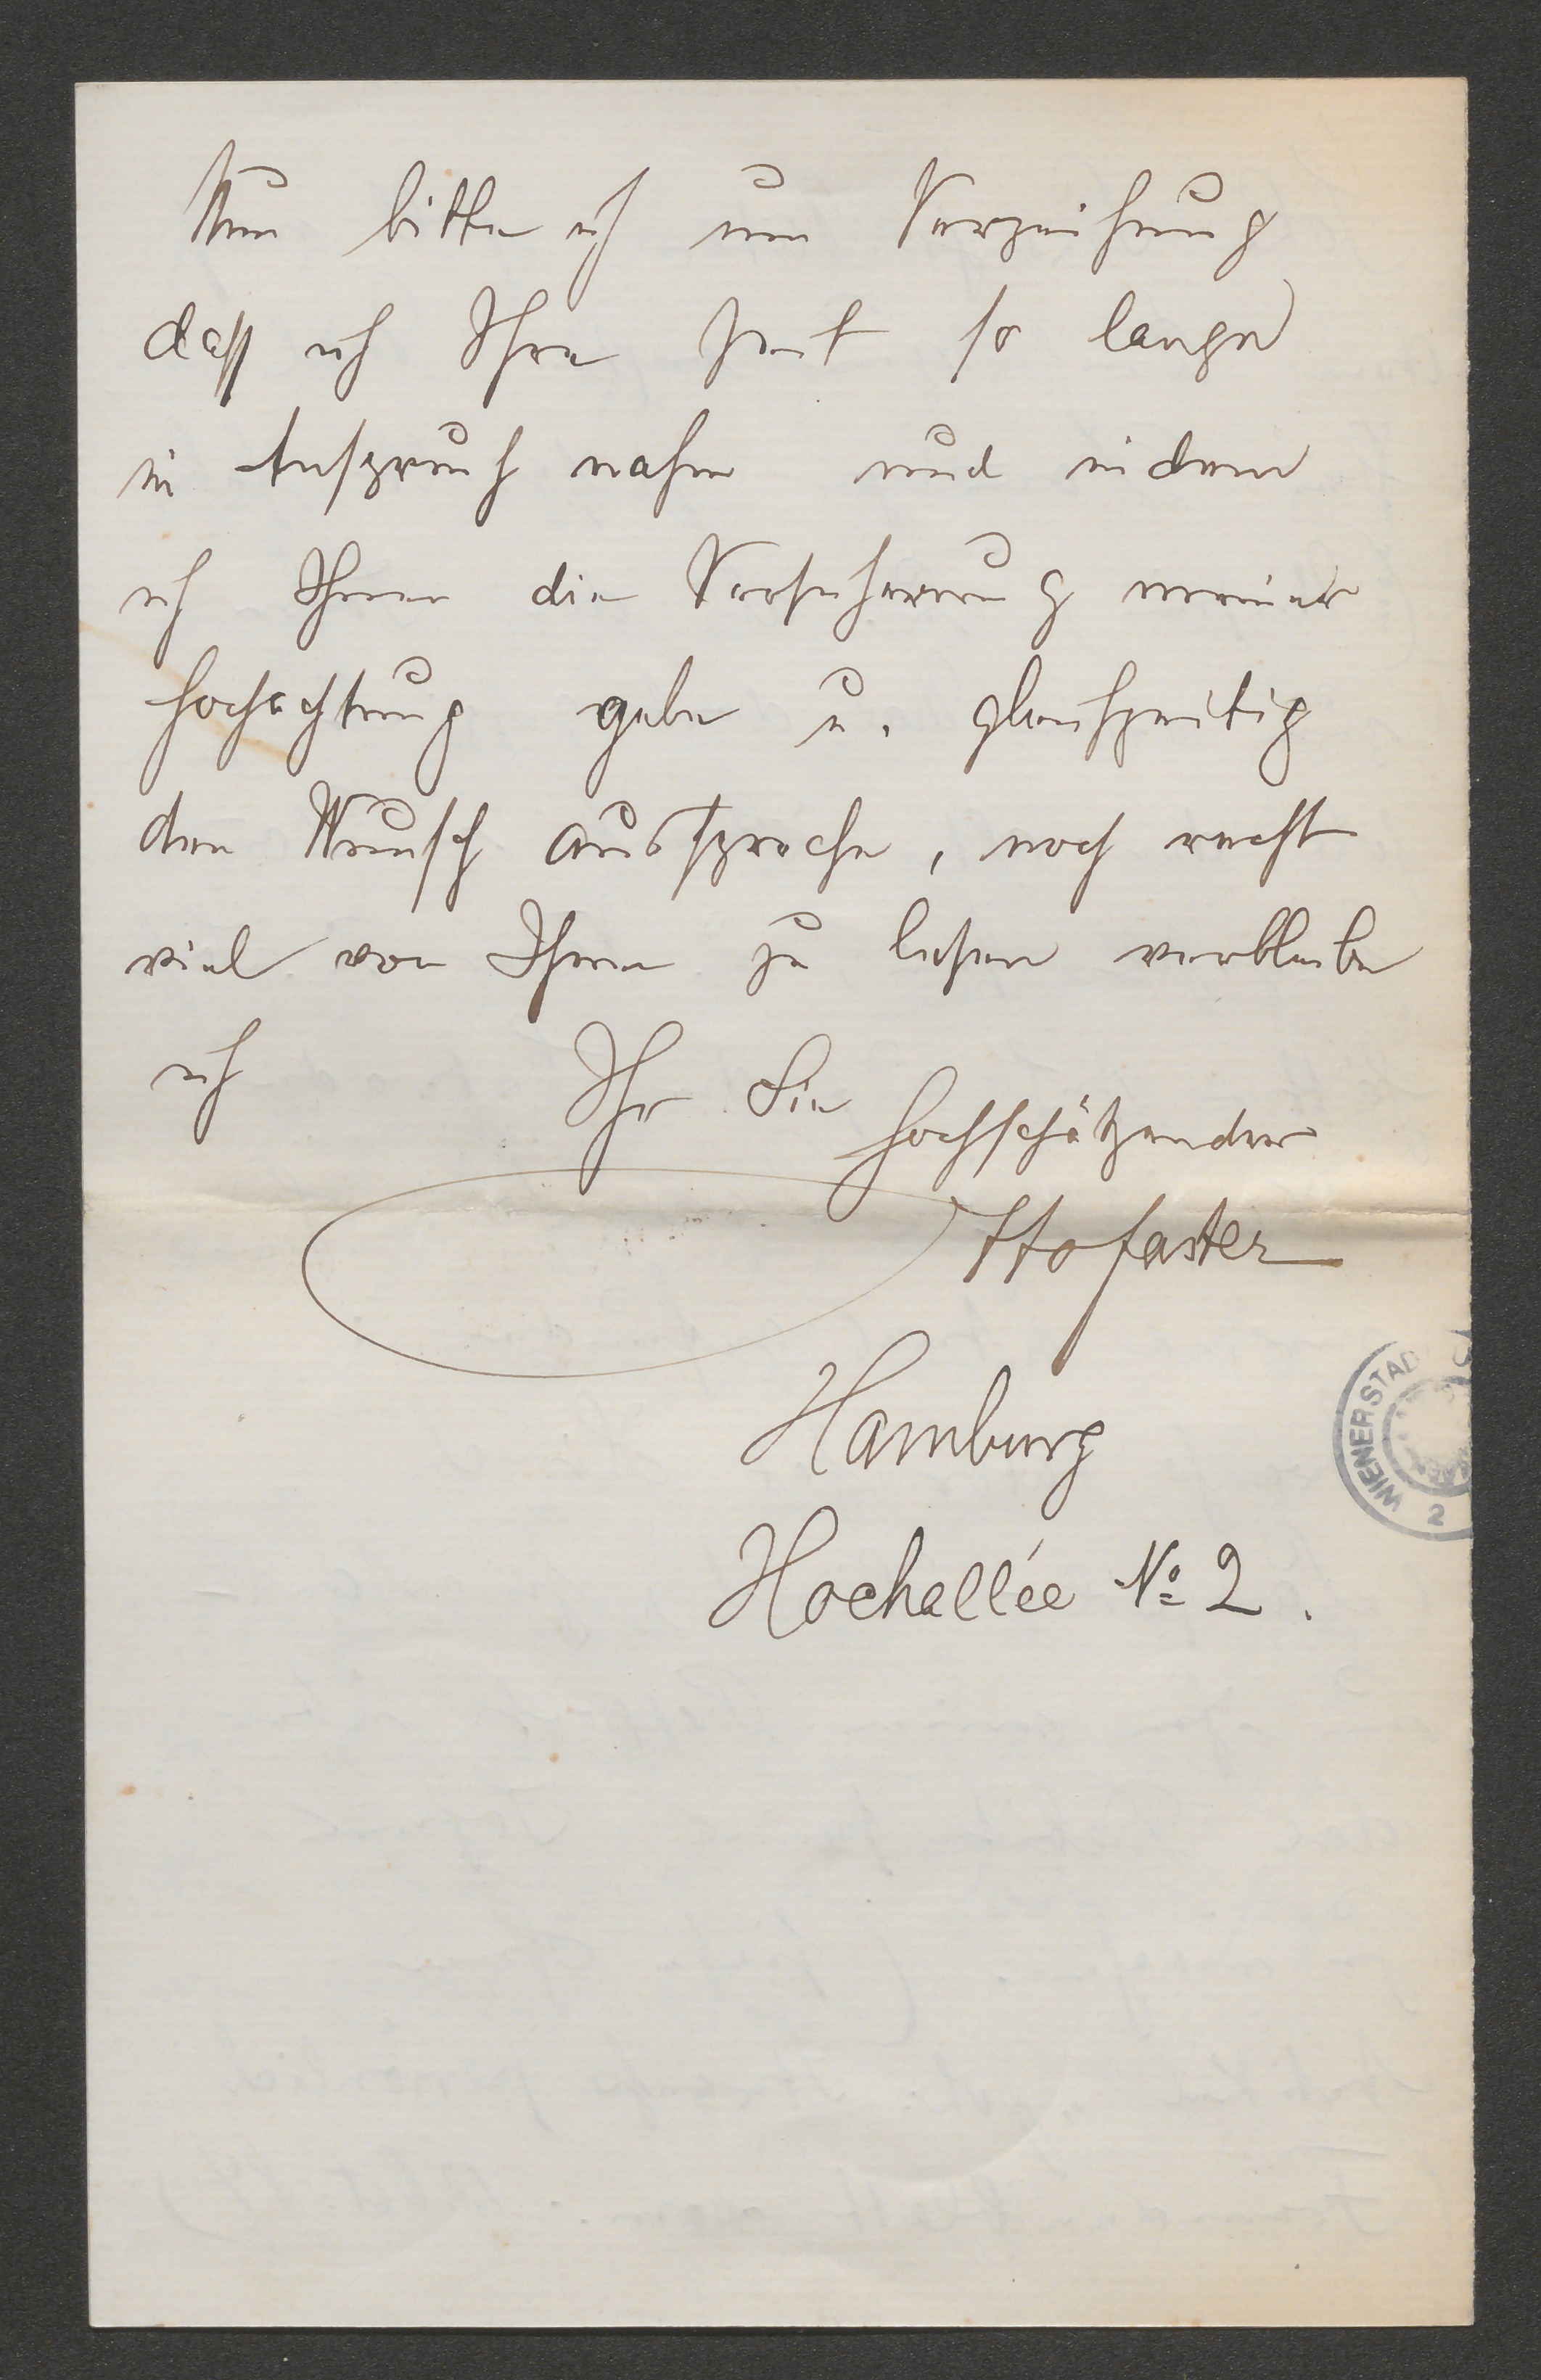 Nun bitte ich um Verzeihung
dass ich Ihre Zeit so lange
in Anspruch nahm und indem
ich Ihnen die Versicherung meiner
Hochachtung gebe u. gleichzeitig
den Wunsch ausspreche, noch recht
viel von Ihnen zu lesen verbleibe
ich Ihr Sie
hochschätzender
Hamburg
Hochallée No 2.
WIENER STAD
2